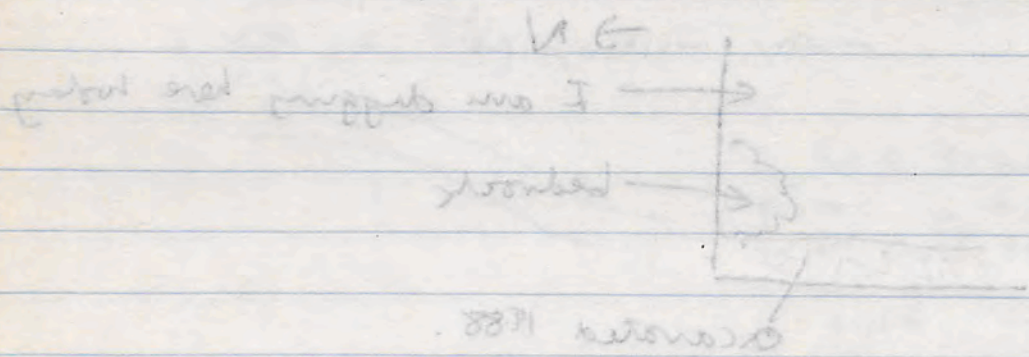 N
I am digging here today
bedrock
excavated 1988.